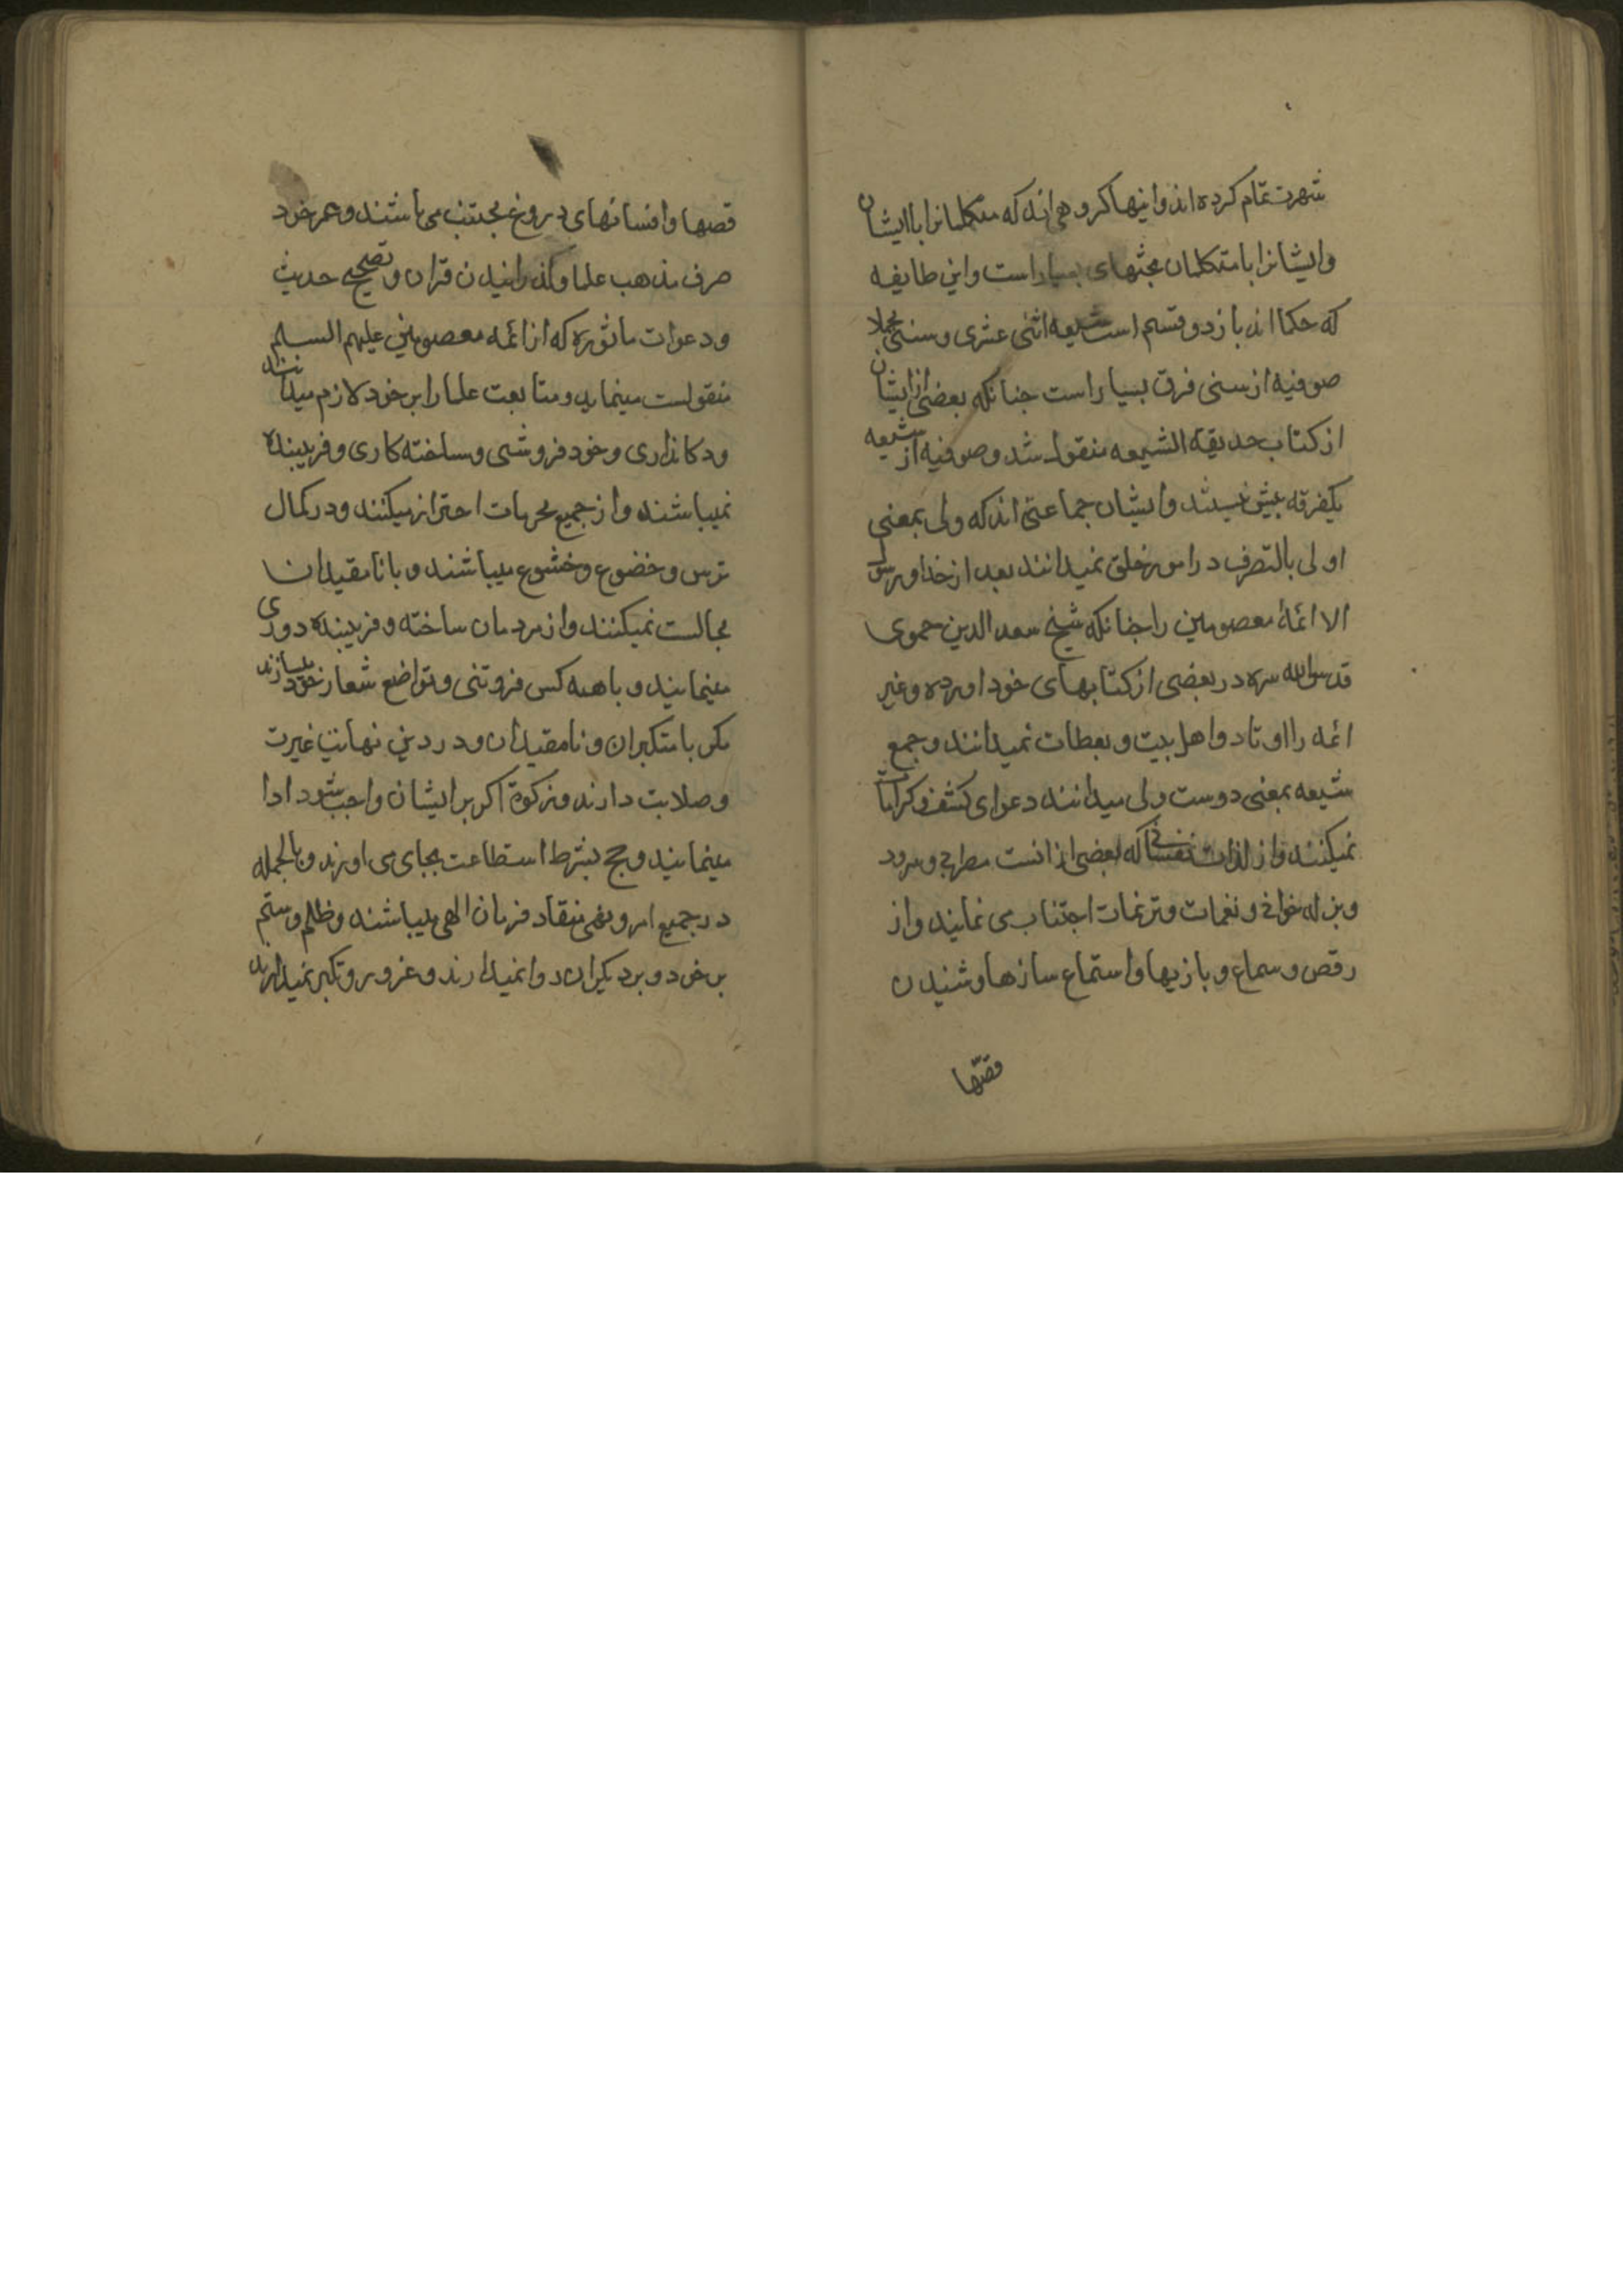 شهرت تمام کرده اند و اینها کروهی اند که متکلمانرا با ایشان
و ایشانرا با متکلمان بحثهای بسیار است و این طایفه
که حکما اند باز دو قسم است شیعه اثنی عشری و سنی مجملا
صوفیه از سنی فرق بسیار است جنانکه بعضی از ایشان
از کتاب حدیقه الشیعه منقول شد و صوفیه از شیعه
یکفرقه بیش نیستند و ایشان جماعتی اند که ولی بمعنی
اولی بالتصرف در امور خلق نمیدانند بعد از خدا و رسول
الا ائمهٔ معصومین را جنانکه شیخ سعد الدین حموی
قدس الله سره در بعضی از کتابهای خود اورده و غیر
ائمه را اوتاد و اهل بیت و بعطات نمیدانند و جمع
شیعه بمعنی دوست ولی میدانند دعوای کشف و کرامات
نمیکنند و از لذات نفسانی که بعضی از انست مطرابی و سرود
و بزله خوانی و نغمات و ترنمات اجتناب می نمایند و از
رقص و سماع و بازیها و استماع سازها و شنیدن
قصّها
قصها و افسانهای دروغ مجتنب می باشند و عمر خود
صرف مذهب علما و کذرانیدن قران و تصحیح حدیث
و دعوات ماثوره که از ائمه معصومین علیهم السلم
منقولست مینماید و متابعت علما را بر خود لازم میدانند
و دکانداری و خود فروشی و ساخته کاری و فریبنده
نمیباشند و از جمیع محرمات احتراز میکنند و در کمال
ترس و خضوع و خشوع میباشند و با نامقیدان
مجالست نمیکنند و از مردمان ساخته و فریبنده دوری
مینمایند و با همه کس فروتنی و تواضع شعار خود میسازند
مکر با متکبران و نامقیدان و در دین نهایت غیرت
و صلابت دارند و زکوة اکر بر ایشان واجب شود ادا
مینمایند و حج بشرط استطاعت بجای می اورند و بالجمله
در جمیع امر و نهی منقاد فرمان الهی میباشند و ظلم و ستم
بر خود و بر دیکران روا نمیدارند و غرور و تکبر نمیدارند